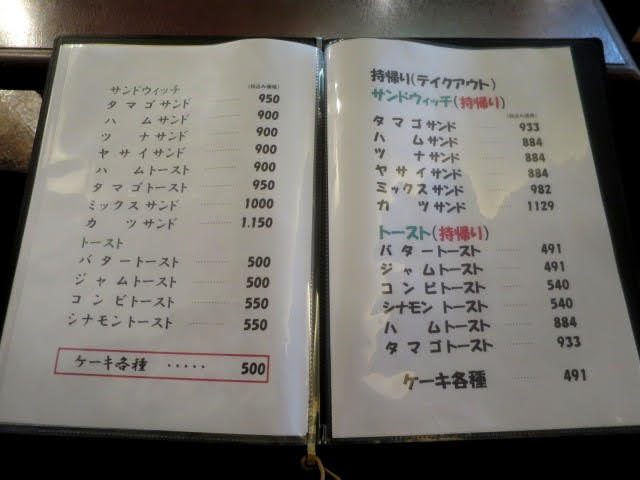 サンドウィッチ (税込み価格)
タマゴサンド ‥‥‥ 950
ハムサンド ‥‥‥ 900
ツナサンド ‥‥‥ 900
ヤサイサンド ‥‥‥ 900
ハムトースト ‥‥‥ 900
タマゴトースト ‥‥‥ 950
ミックスサンド ‥‥‥ 1000
カツサンド ‥‥‥ 1.150
トースト
バタートースト ‥‥‥ 500
ジャムトースト ‥‥‥ 500
コンビトースト ‥‥‥ 550
シナモントースト ‥‥‥ 550
ケーキ各種 ・・・・・ 500
持帰り(テイクアウト)
サンドウィッチ(持帰り)
(税込み価格)
タマゴサンド ‥‥‥ 933
ハムサンド ‥‥‥ 884
ツナサンド ‥‥‥ 884
ヤサイサンド ‥‥‥ 884
ミックスサンド ‥‥‥ 982
カツサンド ‥‥‥ 1129
トースト(持帰り)
バタートースト ‥‥‥ 491
ジャムトースト ‥‥‥ 491
コンビトースト ‥‥‥ 540
シナモントースト ‥‥‥ 540
ハムトースト ‥‥‥ 884
タマゴトースト ‥‥‥ 933
ケーキ各種 491